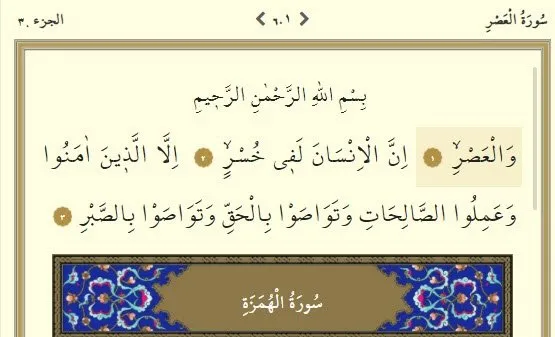 سُورَةُ الْعَصْرِ ٦٠١ الجزء ٣٠
بِسْمِ اللهِ الرَّحْمٰنِ الرَّحٖيمِ
وَالْعَصْرِۙ ١ اِنَّ الْاِنْسَانَ لَفٖي خُسْرٍۙ ٢ اِلَّا الَّذٖينَ اٰمَنُوا
وَعَمِلُوا الصَّالِحَاتِ وَتَوَاصَوْا بِالْحَقِّ وَتَوَاصَوْا بِالصَّبْرِ ٣
سُورَةُ الْهُمَزَةِ